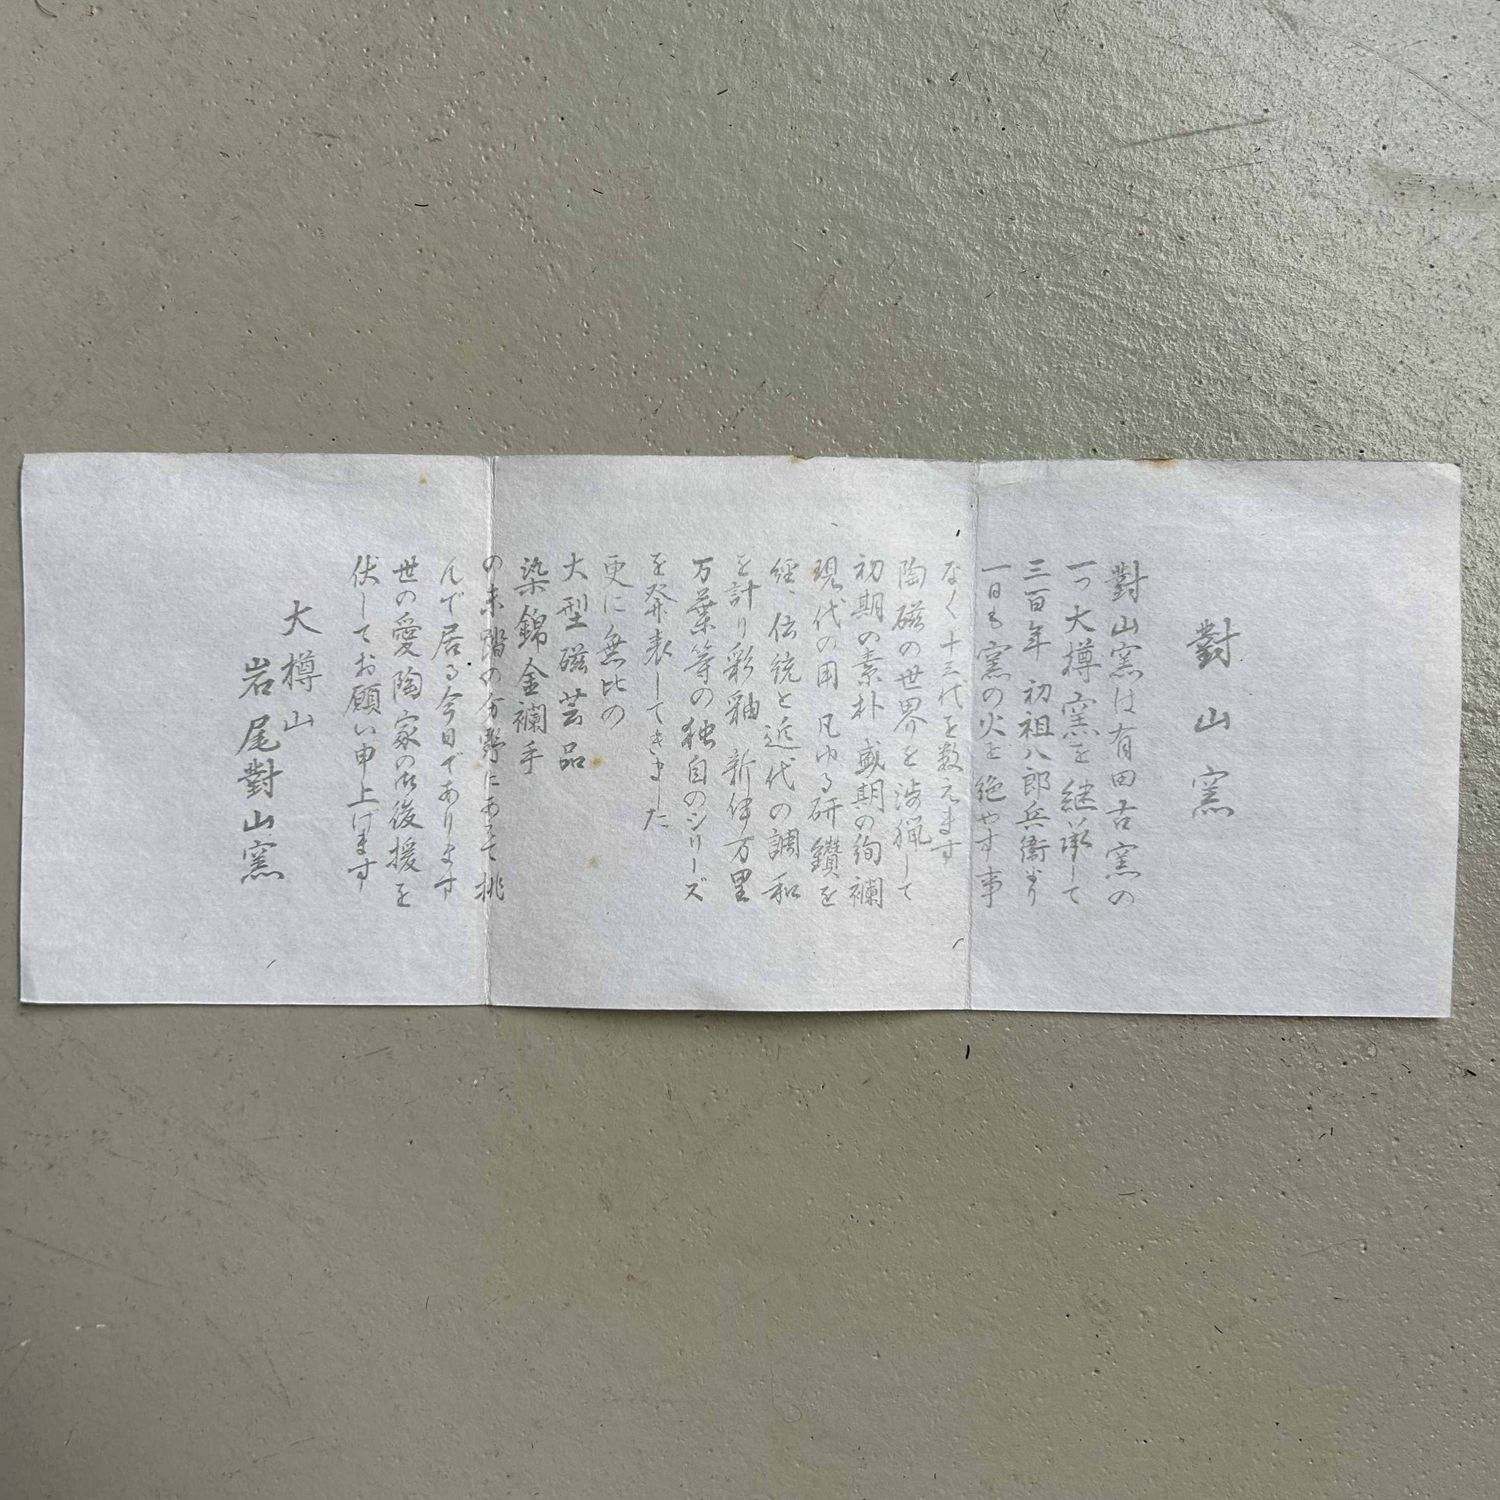 對山窯
對山窯は有田古窯の
一つ大樽窯を継承して
三百年 初祖八郎兵衛より
一日も窯の火を絶やす事
なく十三代を数えます
陶磁の世界を渉猟して
初期の素朴 盛期の絢襴
現代の用 凡ゆる研鑽を
経、伝統と近代の調和
を計り彩釉、新伊万里
万葉等の独自のシリーズ
を発表してきました
更に無比の
大型磁芸品
染錦金襴手
の未踏の分野にあえて挑
んで居る今日であります
世の愛陶家の御後援を
伏してお願い申上げます
大樽山
岩尾對山窯